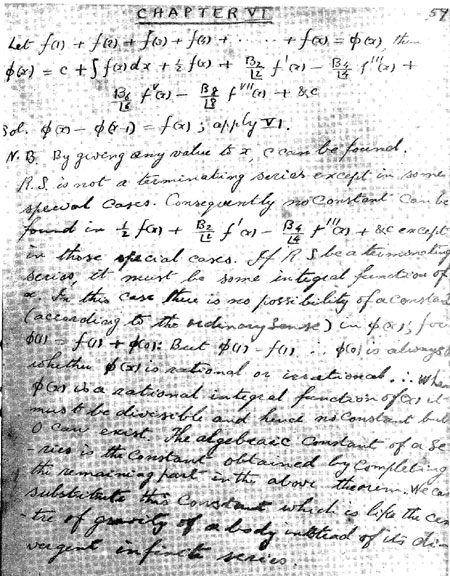 CHAPTER VI 59
Let f(1) + f(2) + f(3) + f(4) + ...... + f(x) = φ(x), then
φ(x) = c + ∫f(x)dx + ½ f(x) + B₂/⌊2 f'(x) − B₄/⌊4 f'''(x) +
B₆/⌊6 fⱽ(x) − B₈/⌊8 fⱽᴵᴵ(x) + &c
Sol. φ(x) − φ(x-1) = f(x); apply VI.
N.B. By giving any value to x, c can be found.
R.S. is not a terminating series except in some
special cases. Consequently no constant can be
found in ½ f(x) + B₂/⌊2 f'(x) − B₄/⌊4 f'''(x) + &c except
in those special cases. If R.S be a terminating
series, it must be some integral function of
x. In this case there is no possibility of a constant
(according to the ordinary sense) in φ(x); for
φ(1) = f(1) + φ(0). But φ(1) = f(1). ∴ φ(0) is always 0
whether φ(x) is rational or irrational. ∴ When
φ(x) is a rational integral function of (x) it
must be divisible and hence no constant but
0 can exist. The algebraic constant of a se-
-ries is the constant obtained by completing
the remaining part in the above theorem. We can
substitute this constant which is like the cen-
tre of gravity of a body instead of its di-
vergent infinite series.